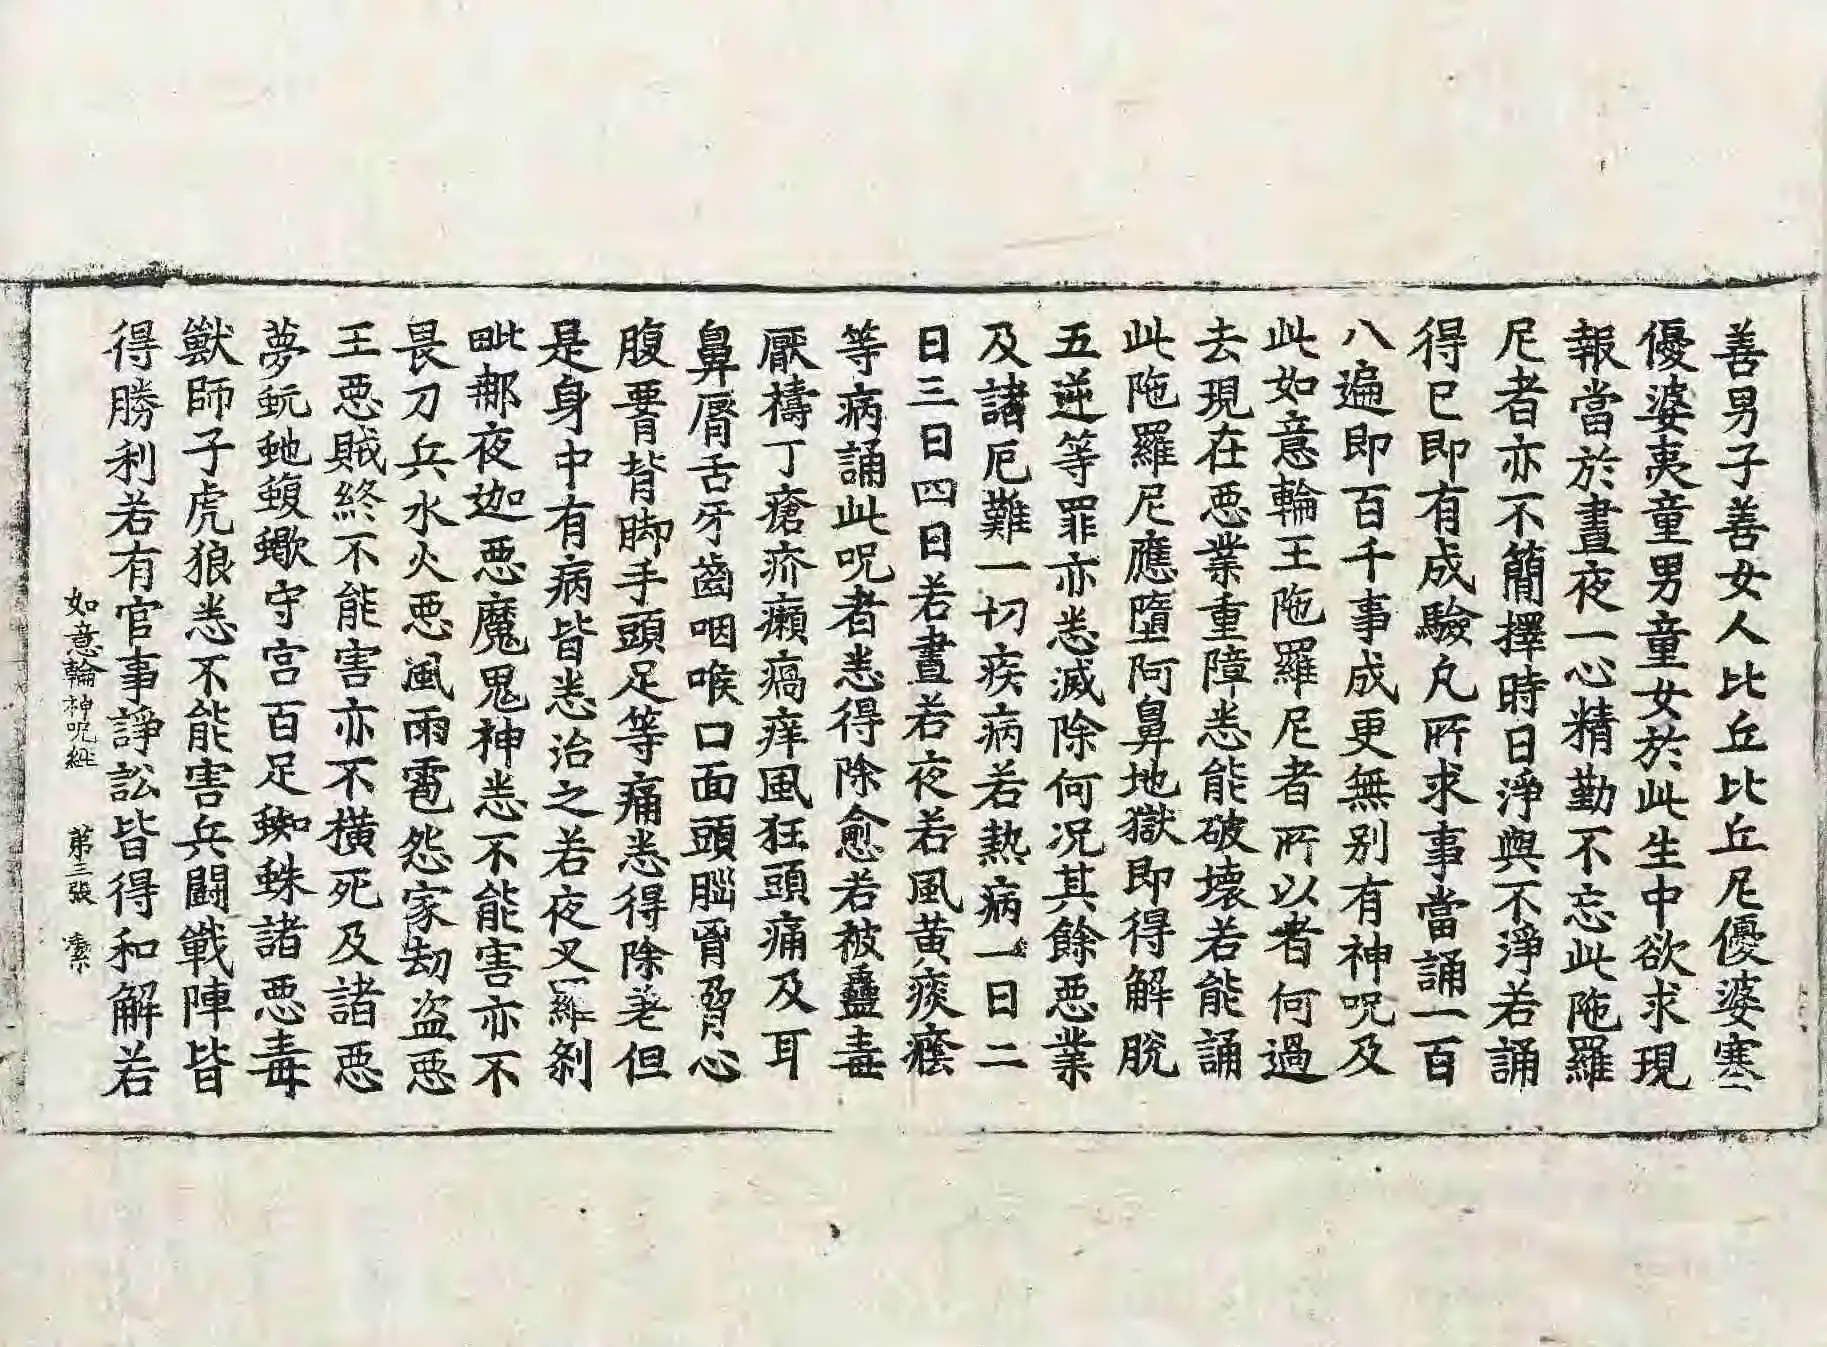 善男子善女人比丘比丘尼優婆塞
優婆夷童男童女於此生中欲求現
報當於晝夜一心精勤不忘此陁羅
尼者亦不簡擇時日淨與不淨若誦
得已即有成驗凡所求事當誦一百
八遍即百千事成更無别有神呪及
此如意輪王陁羅尼者所以者何過
去現在惡業重障悉能破壞若能誦
此陁羅尼應墮阿鼻地獄即得解脫
五逆等罪亦悉滅除何况其餘惡業
及諸厄難一切疾病若熱病一日二
日三日四日若晝若夜若風黃痰癊
等病誦此呪者悉得除愈若被蠱毒
厭禱丁瘡疥癩瘑痒風狂頭痛及耳
鼻脣舌牙齒咽喉口面頭腦胷脅心
腹䯒背脚手頭足等痛悉得除差但
是身中有病皆悉治之若夜叉羅刹
毗那夜迦惡魔鬼神悉不能害亦不
畏刀兵水火惡風雨雹怨家劫盜惡
王惡賊終不能害亦不橫死及諸惡
夢蚖虵蝮蠍守宫百足蜘蛛諸惡毒
獸師子虎狼悉不能害兵鬪戰陣皆
得勝利若有官事諍訟皆得和解若
如意輪神呪經 第三張 素